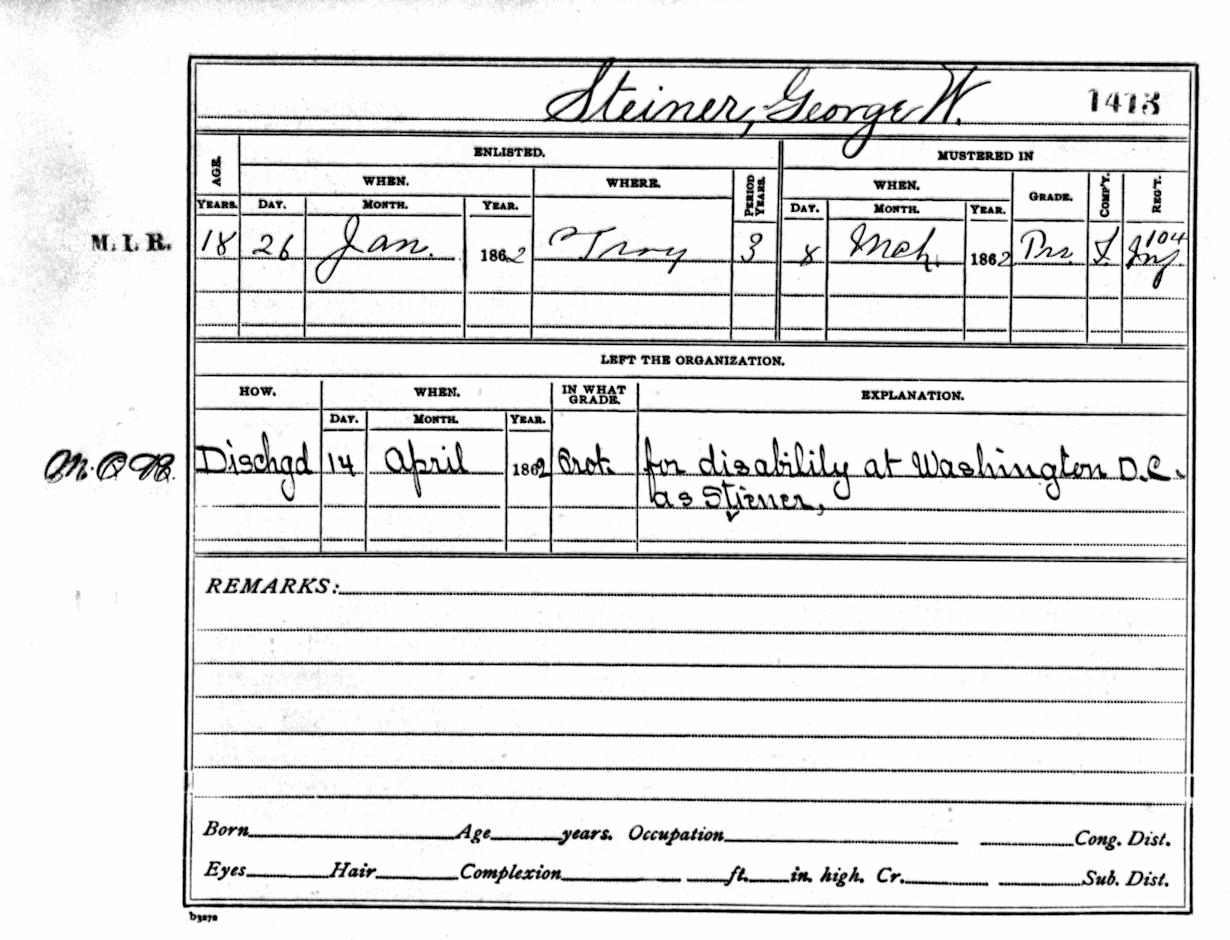 Steiner, George W. 1413
ENLISTED. MUSTERED IN
AGE. WHEN. WHERE. PERIOD YEARS. WHEN. GRADE. COMP'Y. REG'T.
YEARS. DAY. MONTH. YEAR. DAY. MONTH. YEAR.
M. I. R. 18 26 Jan. 1862 Troy 3 8 Mch. 1862 104 Inf
LEFT THE ORGANIZATION.
HOW. WHEN. IN WHAT GRADE. EXPLANATION.
DAY. MONTH. YEAR.
Dischgd 14 April 1862 for disability at Washington D.C.
as Stiener,
REMARKS:
Born Age years. Occupation Cong. Dist.
Eyes Hair Complexion ft. in. high. Cr. Sub. Dist.
b3272